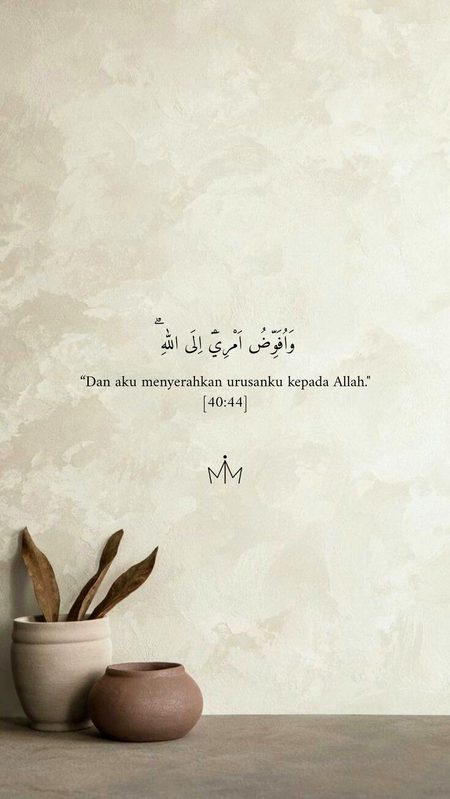 وَاُفَوِّضُ اَمْرِيْٓ اِلَى اللّٰهِ ۗ
“Dan aku menyerahkan urusanku kepada Allah."
[40:44]